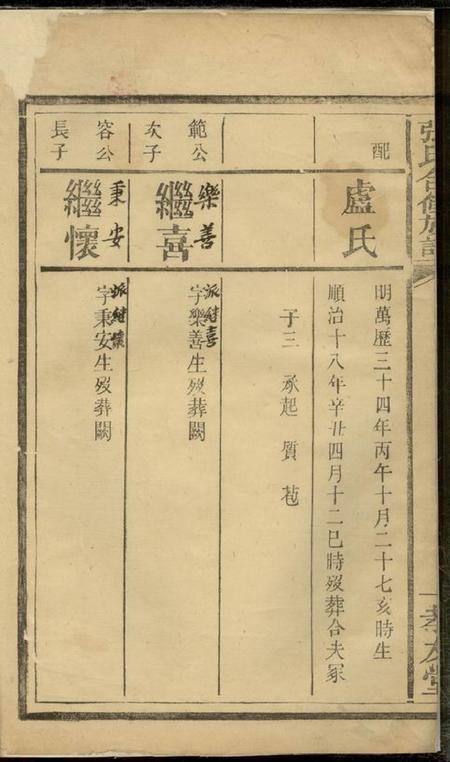 張氏合修族譜
孝友堂
配
盧氏
明萬歷三十四年丙午十月二十七亥時生
順治十八年辛丑四月十二巳時歿葬合夫冢
子三 承起 質 苞
範公
次子
樂善
繼喜
派繼喜
字樂善生歿葬闕
容公
長子
秉安
繼懷
派繼懷
字秉安生歿葬闕